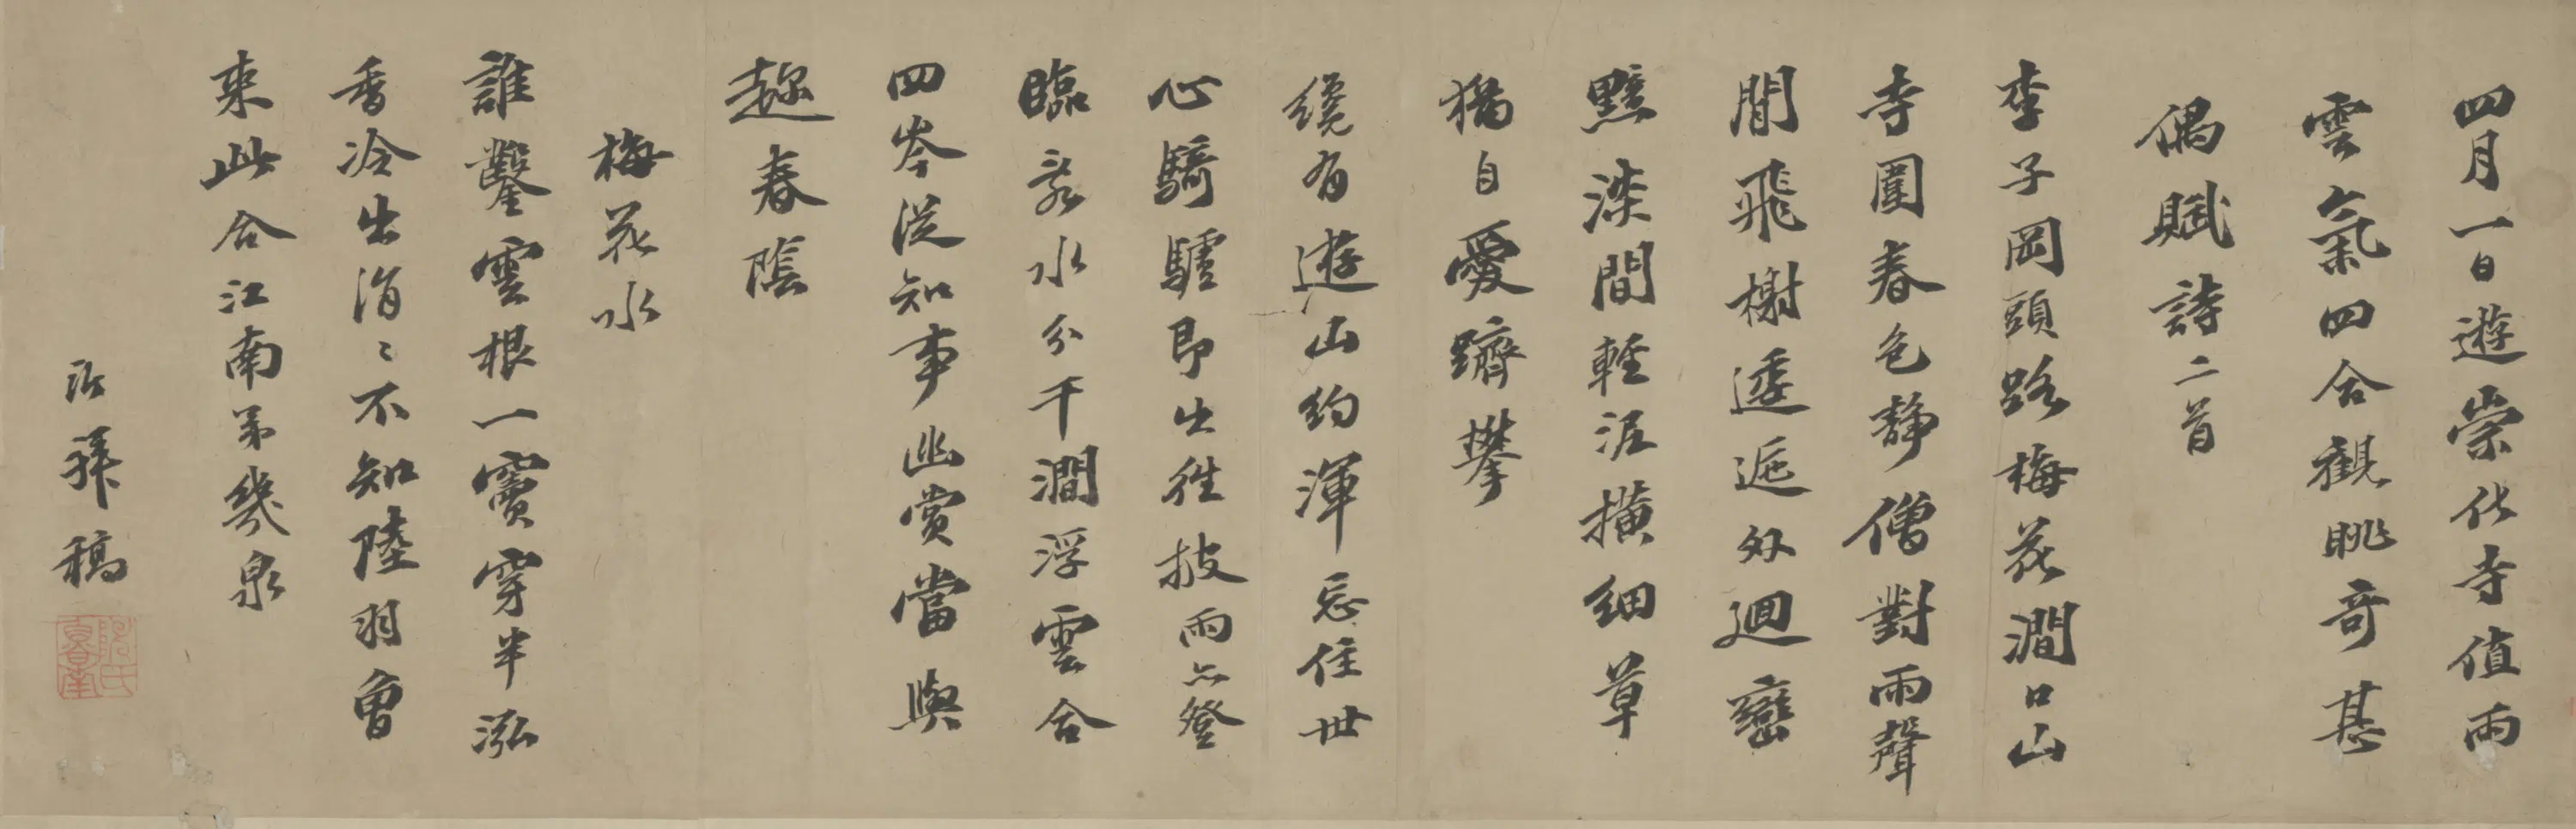 四月一日遊崇化寺值雨
雲氣四合觀眺奇甚
偶賦詩二首
李子岡頭路梅花澗口山
寺圍春色靜僧對雨聲
閒飛榭逶迤外迴巒
黯淡間輕泥橫細草
猶自愛躋攀
纔有遊山約渾忘住世
心騎驢即出往披雨亦登
臨亂水分千澗浮雲合
四岑從知事幽賞當與
趂春陰
梅花水
誰鑿雲根一竇穿半泓
香冷出涓〻不知陸羽曾
來此合江南第幾泉
沂拜稿